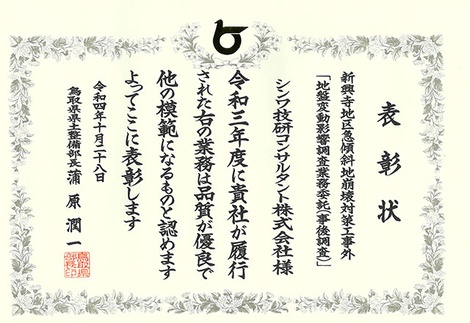 表彰状
新興寺地区急傾斜地崩壊対策工事外
「地盤変動影響調査業務委託（事後調査）」
シンワ技研コンサルタント株式会社様
令和三年度に貴社が履行
された右の業務は品質が優良で
他の模範になるものと認めます
よってここに表彰します
令和四年十月二十八日
鳥取県県土整備部長 蒲原潤一